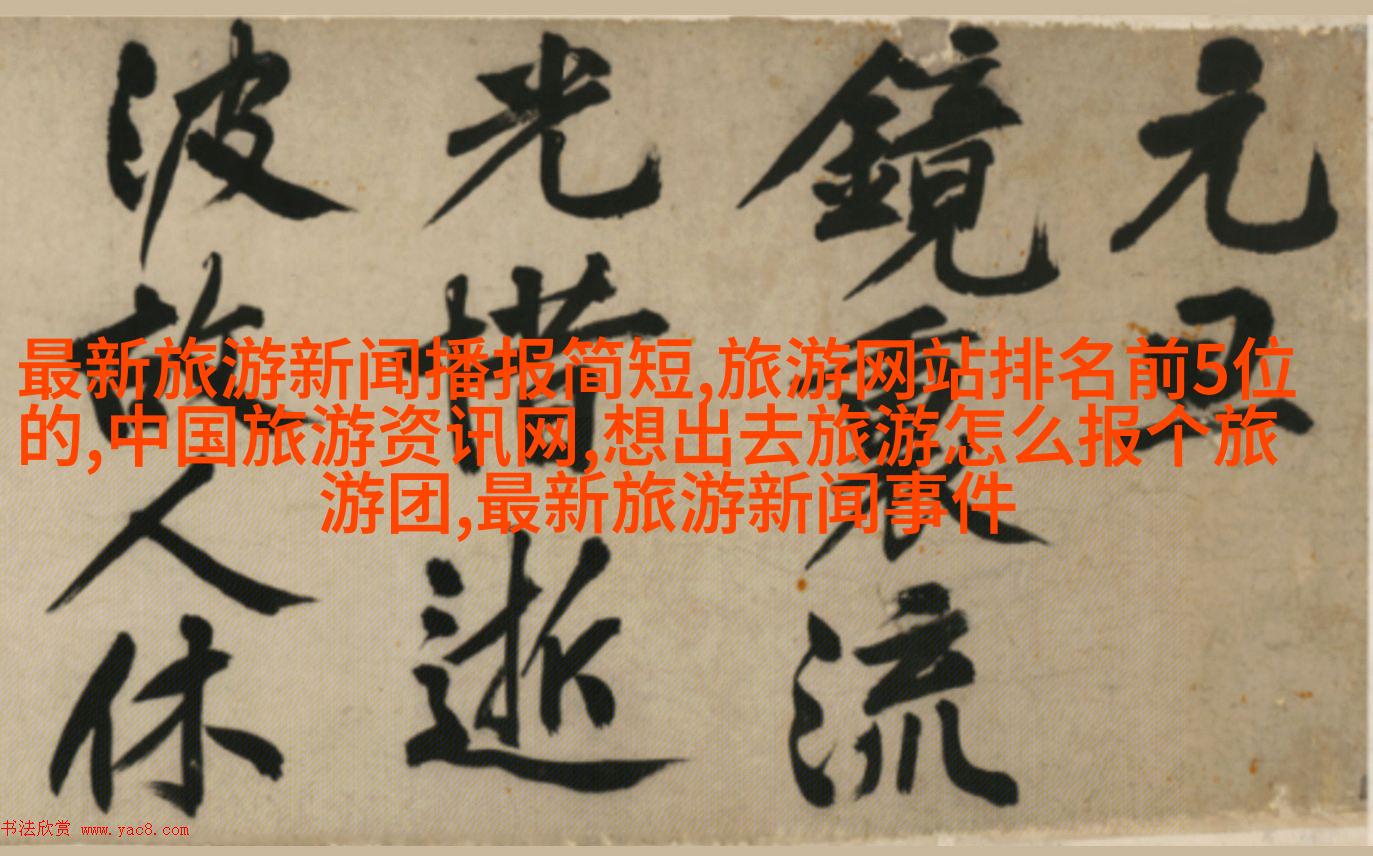 元
鏡裏流
光惜逝
波故人休
最新旅游新闻播报简短,旅游网站排名前5位
的,中国旅游资讯网,想出去旅游怎么报个旅
游团,最新旅游新闻事件
书法欣赏 www.yac8.com